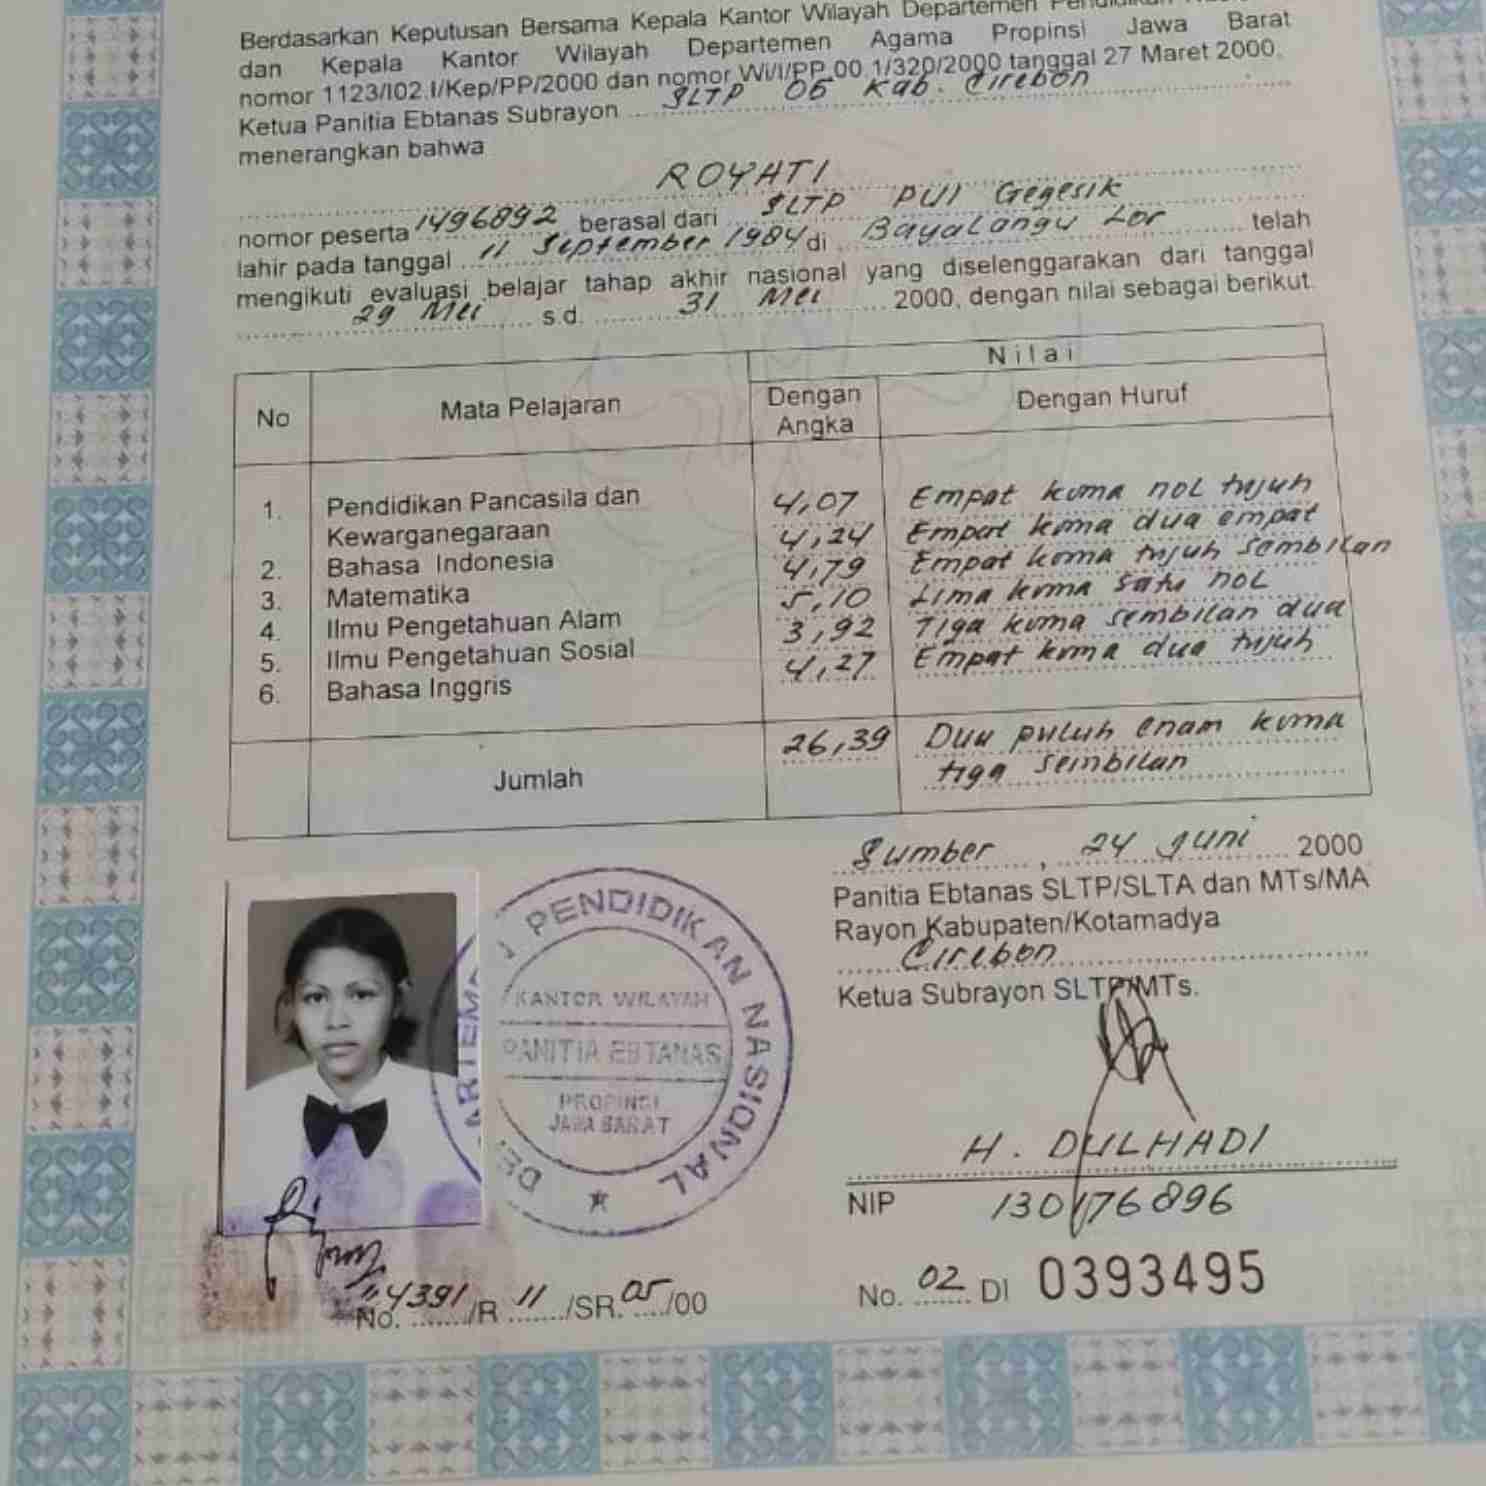 Berdasarkan Keputusan Bersama Kepala Kantor Wilayah Departemen
dan Kepala Kantor Wilayah Departemen Agama Propinsi Jawa Barat
nomor 1123/I02.I/Kep/PP/2000 dan nomor Wi/I/PP.00.1/320/2000 tanggal 27 Maret 2000,
Ketua Panitia Ebtanas Subrayon SLTP 06 Kab. Cirebon
menerangkan bahwa
ROYHTI
nomor peserta 1496892 berasal dari SLTP PUI Gegesik
lahir pada tanggal 11 September 1984 di BayaLangu Lor telah
mengikuti evaluasi belajar tahap akhir nasional yang diselenggarakan dari tanggal
29 Mei s.d. 31 Mei 2000, dengan nilai sebagai berikut.
No Mata Pelajaran Nilai
Dengan Angka Dengan Huruf
1. Pendidikan Pancasila dan 4,07 Empat koma noL tujuh
Kewarganegaraan 4,24 Empat koma dua empat
2. Bahasa Indonesia 4,79 Empat koma tujuh sembilan
3. Matematika 5,10 Lima koma satu noL
4. Ilmu Pengetahuan Alam 3,92 Tiga koma sembilan dua
5. Ilmu Pengetahuan Sosial 4,27 Empat koma dua tujuh
6. Bahasa Inggris
Jumlah 26,39 Dua puluh enam koma
tiga sembilan
Sumber, 24 Juni 2000
Panitia Ebtanas SLTP/SLTA dan MTs/MA
Rayon Kabupaten/Kotamadya
Cirebon
Ketua Subrayon SLTP/MTs.
PENDIDIKAN NASIONAL
KANTOR WILAYAH
PANITIA EBTANAS
PROPINSI
JAWA BARAT
H. DULHADI
NIP 130176896
No. 4391/R 11/SR.05/00
No. 02 DI 0393495